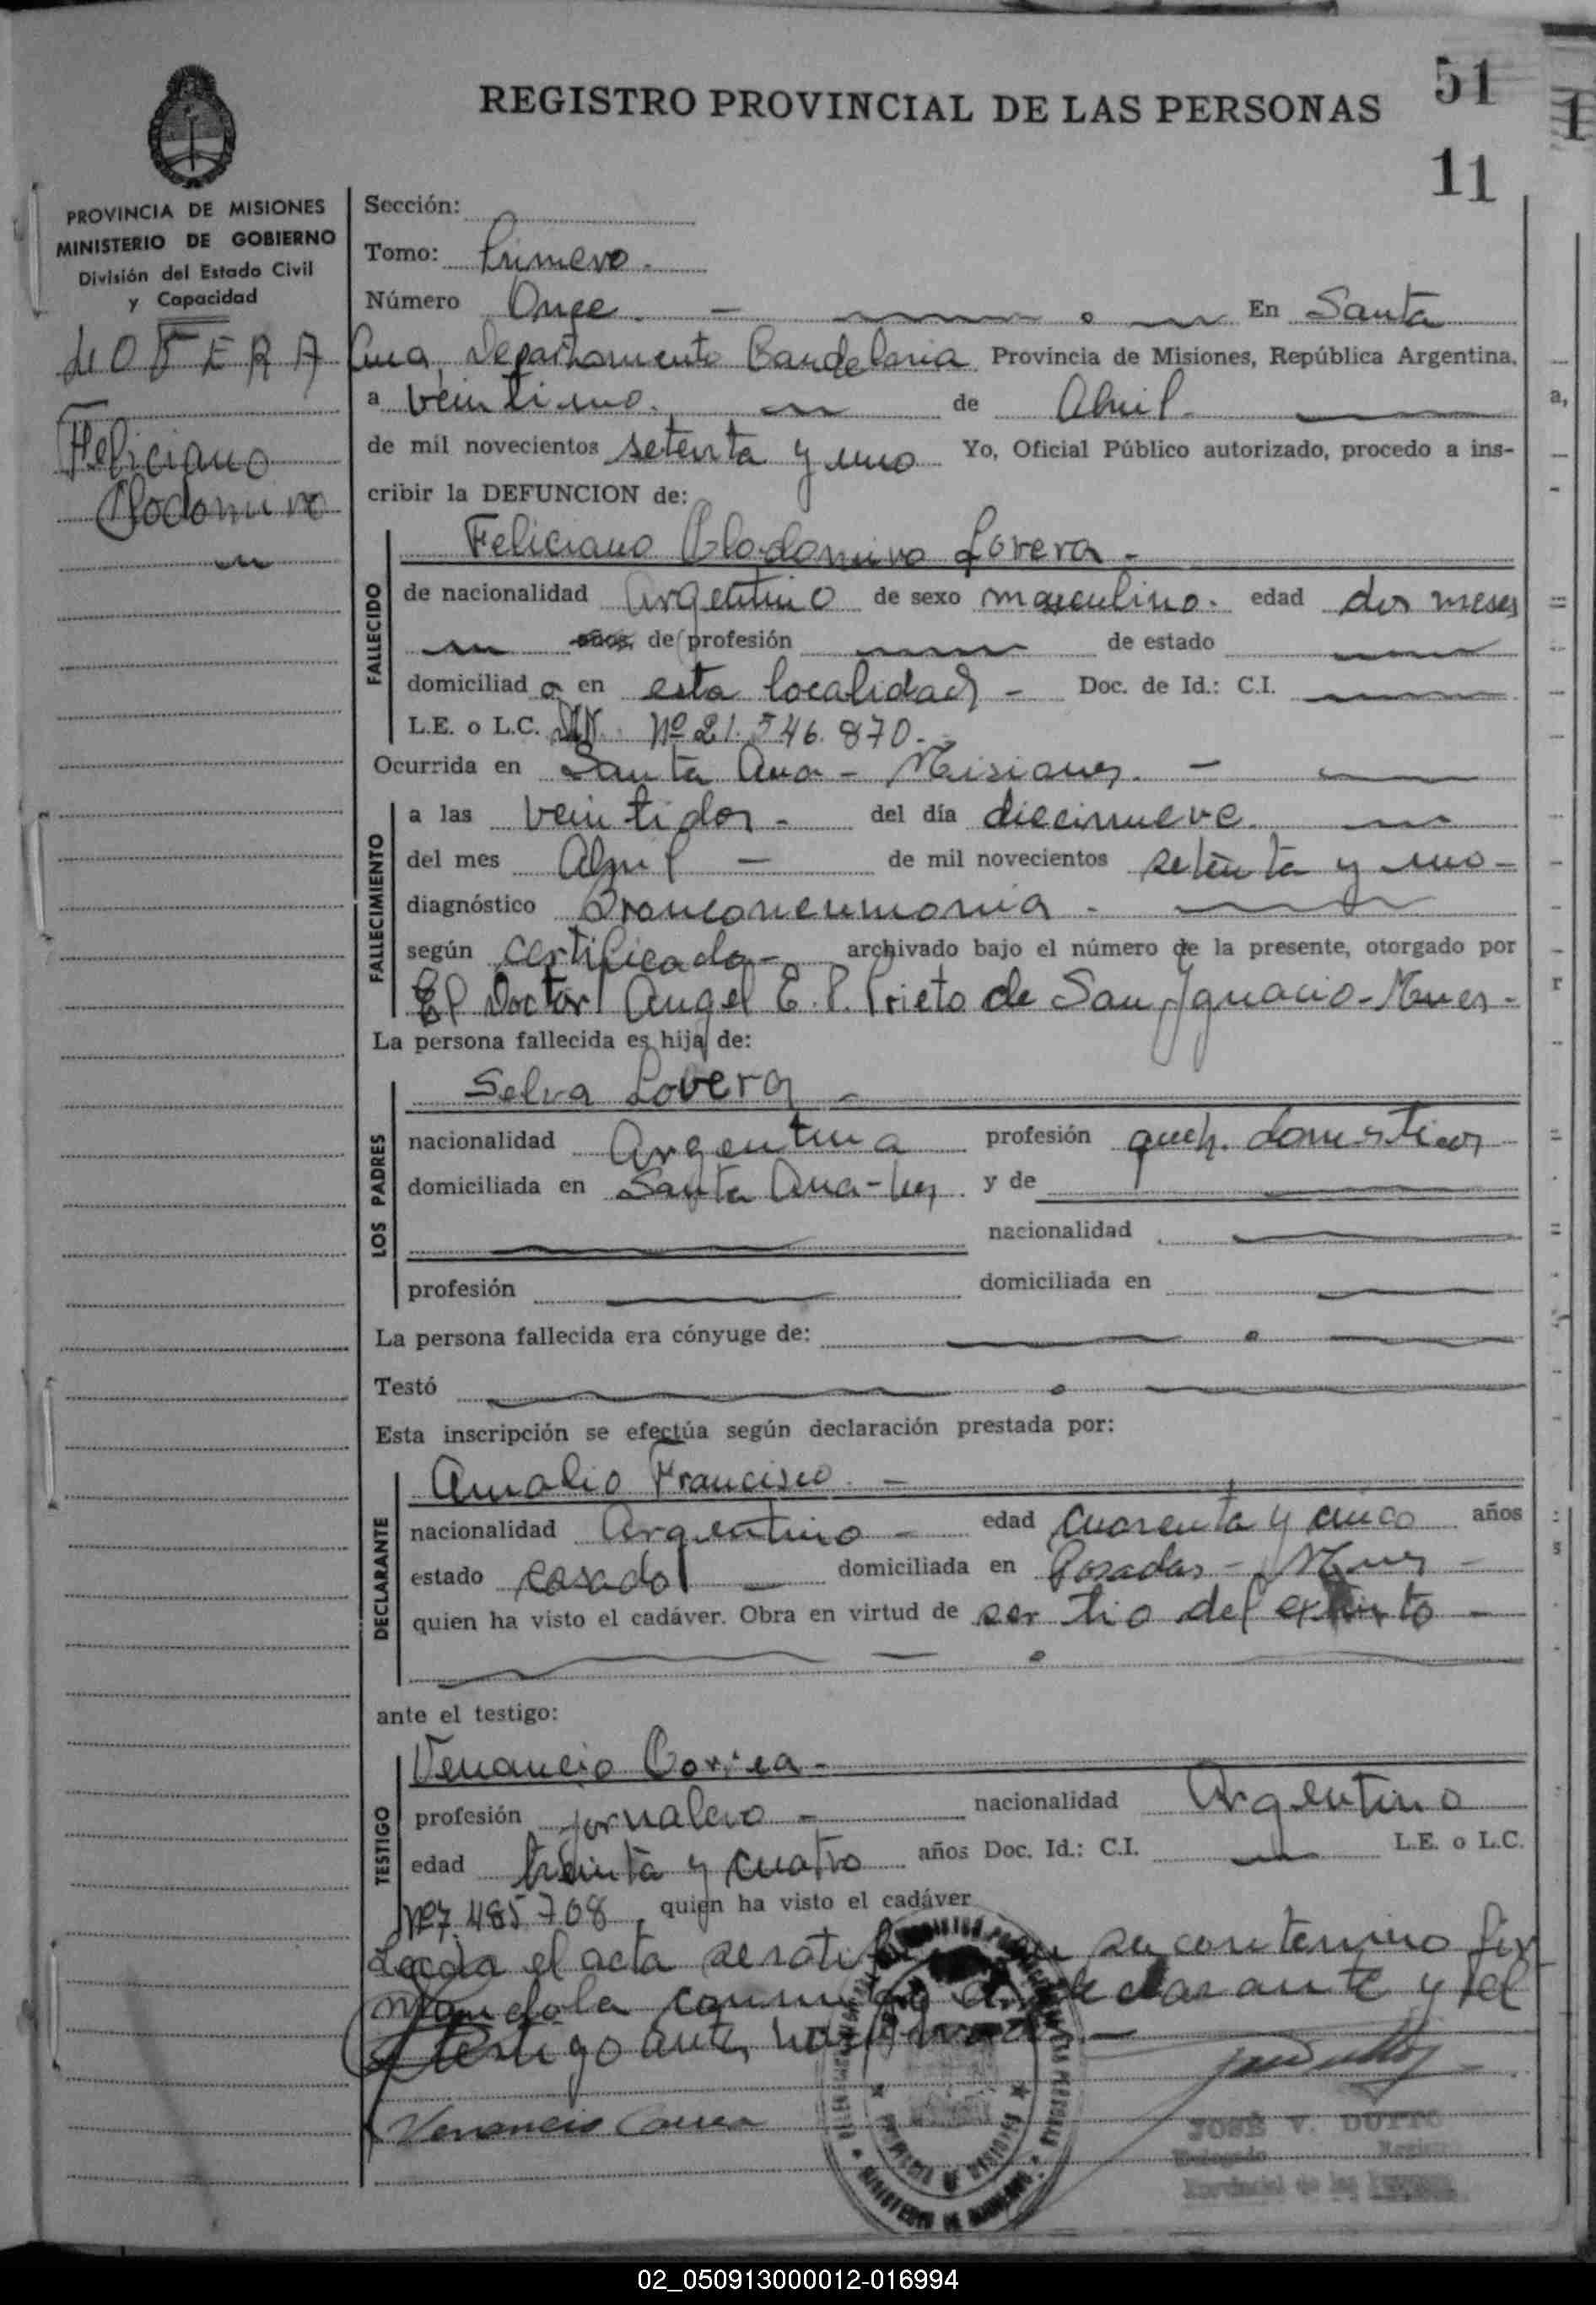 REGISTRO PROVINCIAL DE LAS PERSONAS
51
11
PROVINCIA DE MISIONES
MINISTERIO DE GOBIERNO
División del Estado Civil
y Capacidad
Feliciano
Clodomiro
Sección:
Tomo: Primero.
Número Once. — En Santa
Ana, Departamento Candelaria Provincia de Misiones, República Argentina,
a veintiuno. de Abril.
de mil novecientos setenta y uno Yo, Oficial Público autorizado, procedo a ins-
cribir la DEFUNCION de:
Feliciano Clodomiro Lovera -
FALLECIDO
de nacionalidad Argentino de sexo masculino. edad dos meses
años, de profesión de estado
domiciliad o en esta localidad - Doc. de Id.: C.I.
L.E. o L.C. Nº 21.546.870.-
Ocurrida en Santa Ana - Misiones. -
FALLECIMIENTO
a las veintidos - del día diecinueve
del mes Abril - de mil novecientos setenta y uno -
diagnóstico Bronconeumonia -
según certificado - archivado bajo el número de la presente, otorgado por
El Doctor Angel E. P. Prieto de San Ignacio - Mnes -
La persona fallecida es hija de:
LOS PADRES
Selva Lovera -
nacionalidad Argentina profesión queh. domesticos
domiciliada en Santa Ana - y de
nacionalidad
profesión domiciliada en
La persona fallecida era cónyuge de:
Testó
Esta inscripción se efectúa según declaración prestada por:
DECLARANTE
Amalio Francisco -
nacionalidad Argentino - edad cuarenta y cinco años
estado casado - domiciliada en Posadas - Mnes -
quien ha visto el cadáver. Obra en virtud de ser tio del extinto -
ante el testigo:
TESTIGO
Venancio Correa -
profesión jornalero - nacionalidad Argentino
edad treinta y cuatro años Doc. Id.: C.I. L.E. o L.C.
Nº 7.485.708 quien ha visto el cadáver
el acta se su contenido fir
mandola conmigo el declarante y el
testigo ante
Venancio Correa
JOSÉ V. DUTTO
Provincial de las Personas
02_050913000012-016994